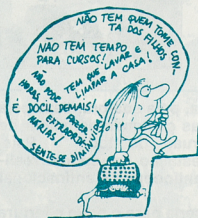 NÃO TEM QUEM TOME CON-
TA DOS FILHOS
NÃO TEM TEMPO
PARA CURSOS!
LAVAR E
TEM QUE
LIMPAR A CASA!
NÃO PODE
FAZER
HORAS
EXTRAORDI-
NÁRIAS!
É DOCIL DEMAIS!
SENTE-SE DIMINUIDA!